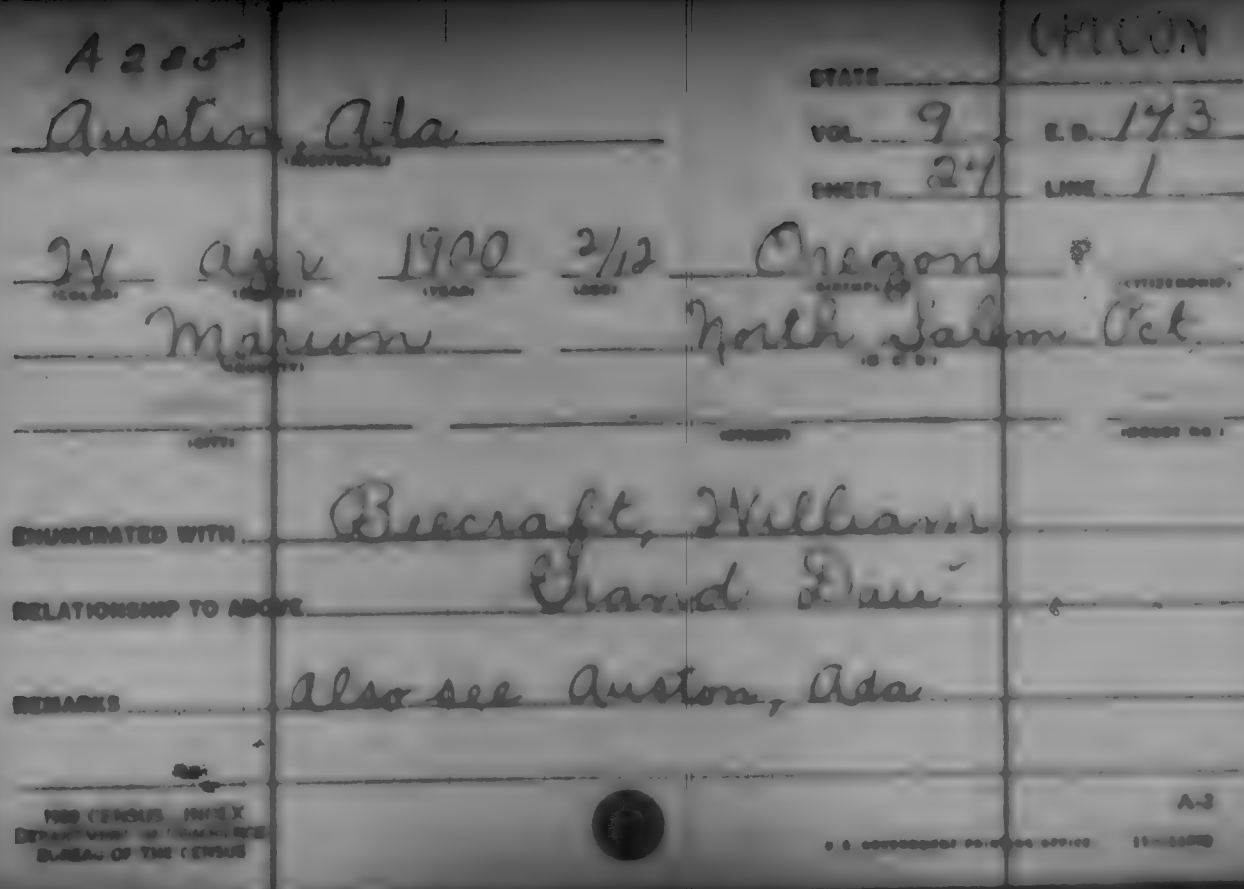 A 225
OREGON
STATE
Austin, Ada
(INDIVIDUAL)
VOL. 9 E.D. 173
SHEET 27 LINE 1
W Apr 1900 2/12 Oregon
(COLOR) (MONTH) (YEAR) (AGE) (BIRTHPLACE) (CITIZENSHIP)
Marion North Salem Pct.
(COUNTY) (M. C. D.)
(CITY) (STREET) (HOUSE NO.)
ENUMERATED WITH Beecraft, William
RELATIONSHIP TO ABOVE Grand Dau
REMARKS Also see Auston, Ada
1900 CENSUS INDEX
DEPARTMENT OF COMMERCE
BUREAU OF THE CENSUS
A-3
U. S. GOVERNMENT PRINTING OFFICE